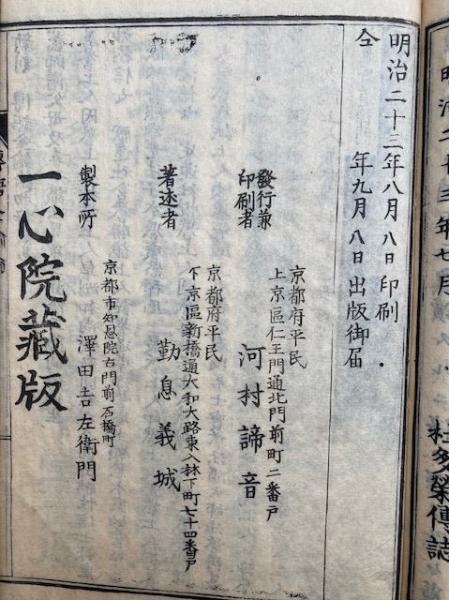 明治二十三年七月
杜多榮傳誌
明治二十三年八月八日印刷
仝　　　年九月八日出版御届
發行兼
印刷者
京都府平民
上京區仁王門通北門前町二番戸
河村諦音
著述者
京都府平民
下京區新橋通大和大路東入林下町七十四番戸
勤息義城
製本所
京都市知恩院古門前石橋町
澤田吉左衛門
一心院藏版